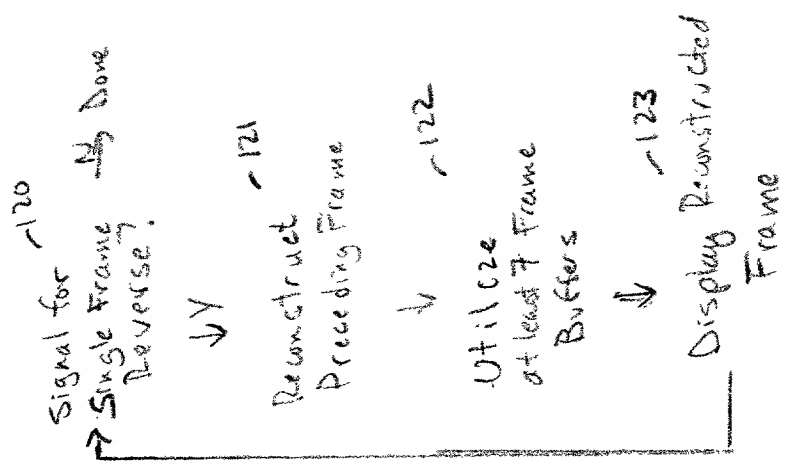 Signal for 120
Single Frame N Done
Reverse?
Y
Reconstruct 121
Preceding Frame
Utilize 122
at least 7 Frame
Buffers
Display Reconstructed 123
Frame